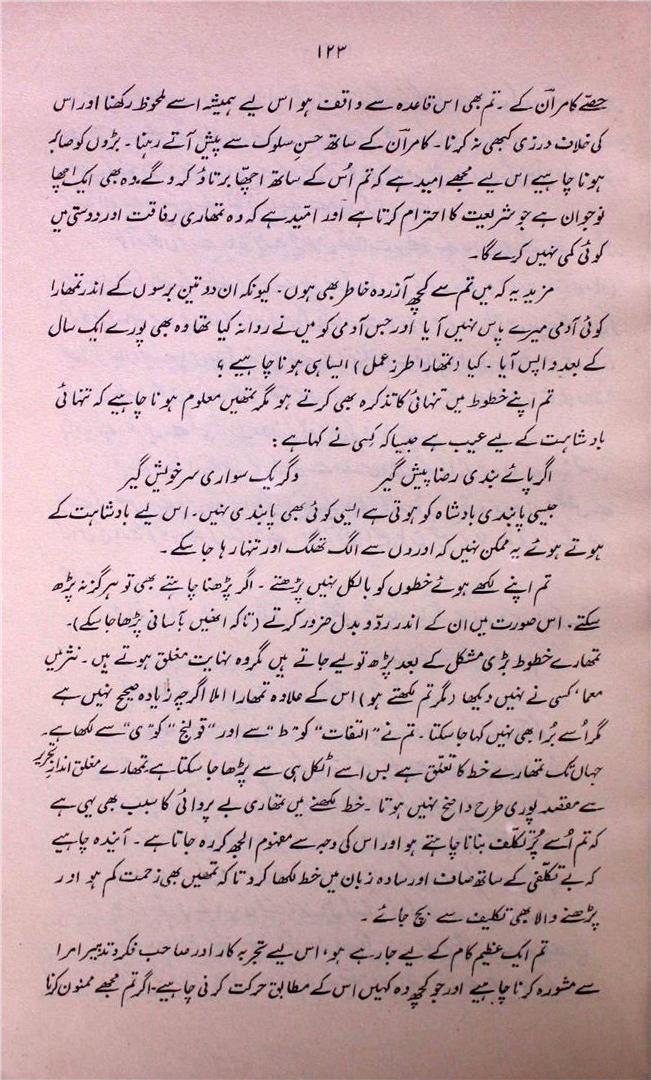 ۱۲۳
حصّے کامران کے۔ تم بھی اس قاعدہ سے واقف ہو اس لیے ہمیشہ اسے ملحوظ رکھنا اور اس
کی خلاف درزی کبھی نہ کرنا۔ کامران کے ساتھ حسنِ سلوک سے پیش آتے رہنا۔ بڑوں کو صابر
ہونا چاہیے اس لیے مجھے امید ہے کہ تم اُس کے ساتھ اچھّا برتاؤ کرو گے۔ وہ بھی ایک اچھا
نوجوان ہے جو شریعت کا احترام کرتا ہے اور امید ہے کہ وہ تمھاری رفاقت اور دوستی میں
کوئی کمی نہیں کرے گا۔
مزید یہ کہ میں تم سے کچھ آزردہ خاطر بھی ہوں۔ کیونکہ ان دو تین برسوں کے اندر تمھارا
کوئی آدمی میرے پاس نہیں آیا اور جس آدمی کو میں نے روانہ کیا تھا وہ بھی پورے ایک سال
کے بعد واپس آیا۔ کیا (تمھارا طرزِ عمل) ایسا ہی ہونا چاہیے ؟
تم اپنے خطوط میں تنہائی کا تذکرہ بھی کرتے ہو مگر تمھیں معلوم ہونا چاہیے کہ تنہائی
بادشاہت کے لیے عیب ہے جیسا کہ کسی نے کہا ہے:
اگر پائے بندی رضا پیش گیر وگر یک سواری سرِ خویش گیر
جیسی پابندی بادشاہ کو ہوتی ہے ایسی کوئی بھی پابندی نہیں۔ اس لیے بادشاہت کے
ہوتے ہوئے یہ ممکن نہیں کہ اوروں سے الگ تھلگ اور تنہا رہا جا سکے۔
تم اپنے لکھے ہوئے خطوں کو بالکل نہیں پڑھتے۔ اگر پڑھنا چاہتے بھی تو ہرگز نہ پڑھ
سکتے۔ اس صورت میں ان کے اندر ردّ و بدل ضرور کرتے (تاکہ انھیں بآسانی پڑھا جا سکے)۔
تمھارے خطوط بڑی مشکل کے بعد پڑھ تو لیے جاتے ہیں مگر وہ نہایت مغلق ہوتے ہیں۔ نثر میں
معما، کسی نے نہیں دیکھا (مگر تم لکھتے ہو) اس کے علاوہ تمھارا املا اگرچہ زیادہ صحیح نہیں ہے
مگر اُسے بُرا بھی نہیں کہا جا سکتا۔ تم نے ”التفات“ کو ”ط“ سے اور ”قولنج“ کو ”ی“ سے لکھا ہے۔
جہاں تک تمھارے خط کا تعلق ہے بس اسے اٹکل ہی سے پڑھا جا سکتا ہے تمھارے مغلق اندازِ تحریر
سے مقصد پوری طرح واضح نہیں ہوتا۔ خط لکھنے میں تمھاری بے پروائی کا سبب بھی یہی ہے
کہ تم اُسے پُر تکلّف بنانا چاہتے ہو اور اس کی وجہ سے مفہوم الجھ کر رہ جاتا ہے۔ آیندہ چاہیے
کہ بے تکلّفی کے ساتھ صاف اور سادہ زبان میں خط لکھا کرو تاکہ تمھیں بھی زحمت کم ہو اور
پڑھنے والا بھی تکلیف سے بچ جائے۔
تم ایک عظیم کام کے لیے جا رہے ہو، اس لیے تجربہ کار اور صاحبِ فکر و تدبیر امرا
سے مشورہ کرنا چاہیے اور جو کچھ وہ کہیں اس کے مطابق حرکت کرنی چاہیے۔ اگر تم مجھے ممنون کرنا